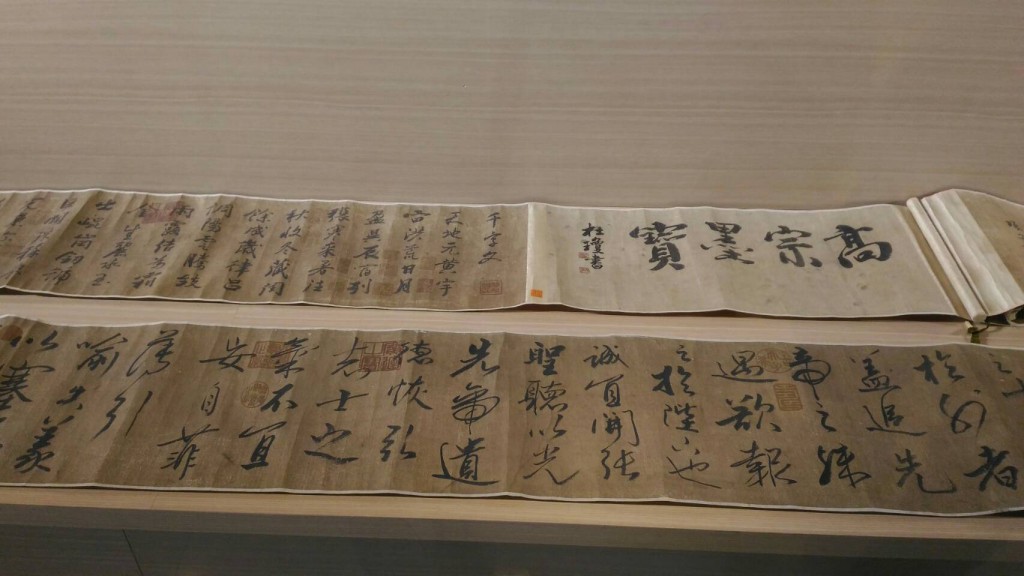 高宗墨寶
千字文
天地玄黃宇
宙洪荒日月
盈昃辰宿列
張寒來暑往
秋收冬藏閏
餘成歲律呂
調陽雲騰致
金生麗水玉
出崑岡劍號
於外者
蓋追先
帝之殊
遇欲報
之於陛下也
誠宜開張
聖聽以光
先帝遺
德恢弘
志士之
氣不宜
妄自菲
薄引
喻失義
以塞